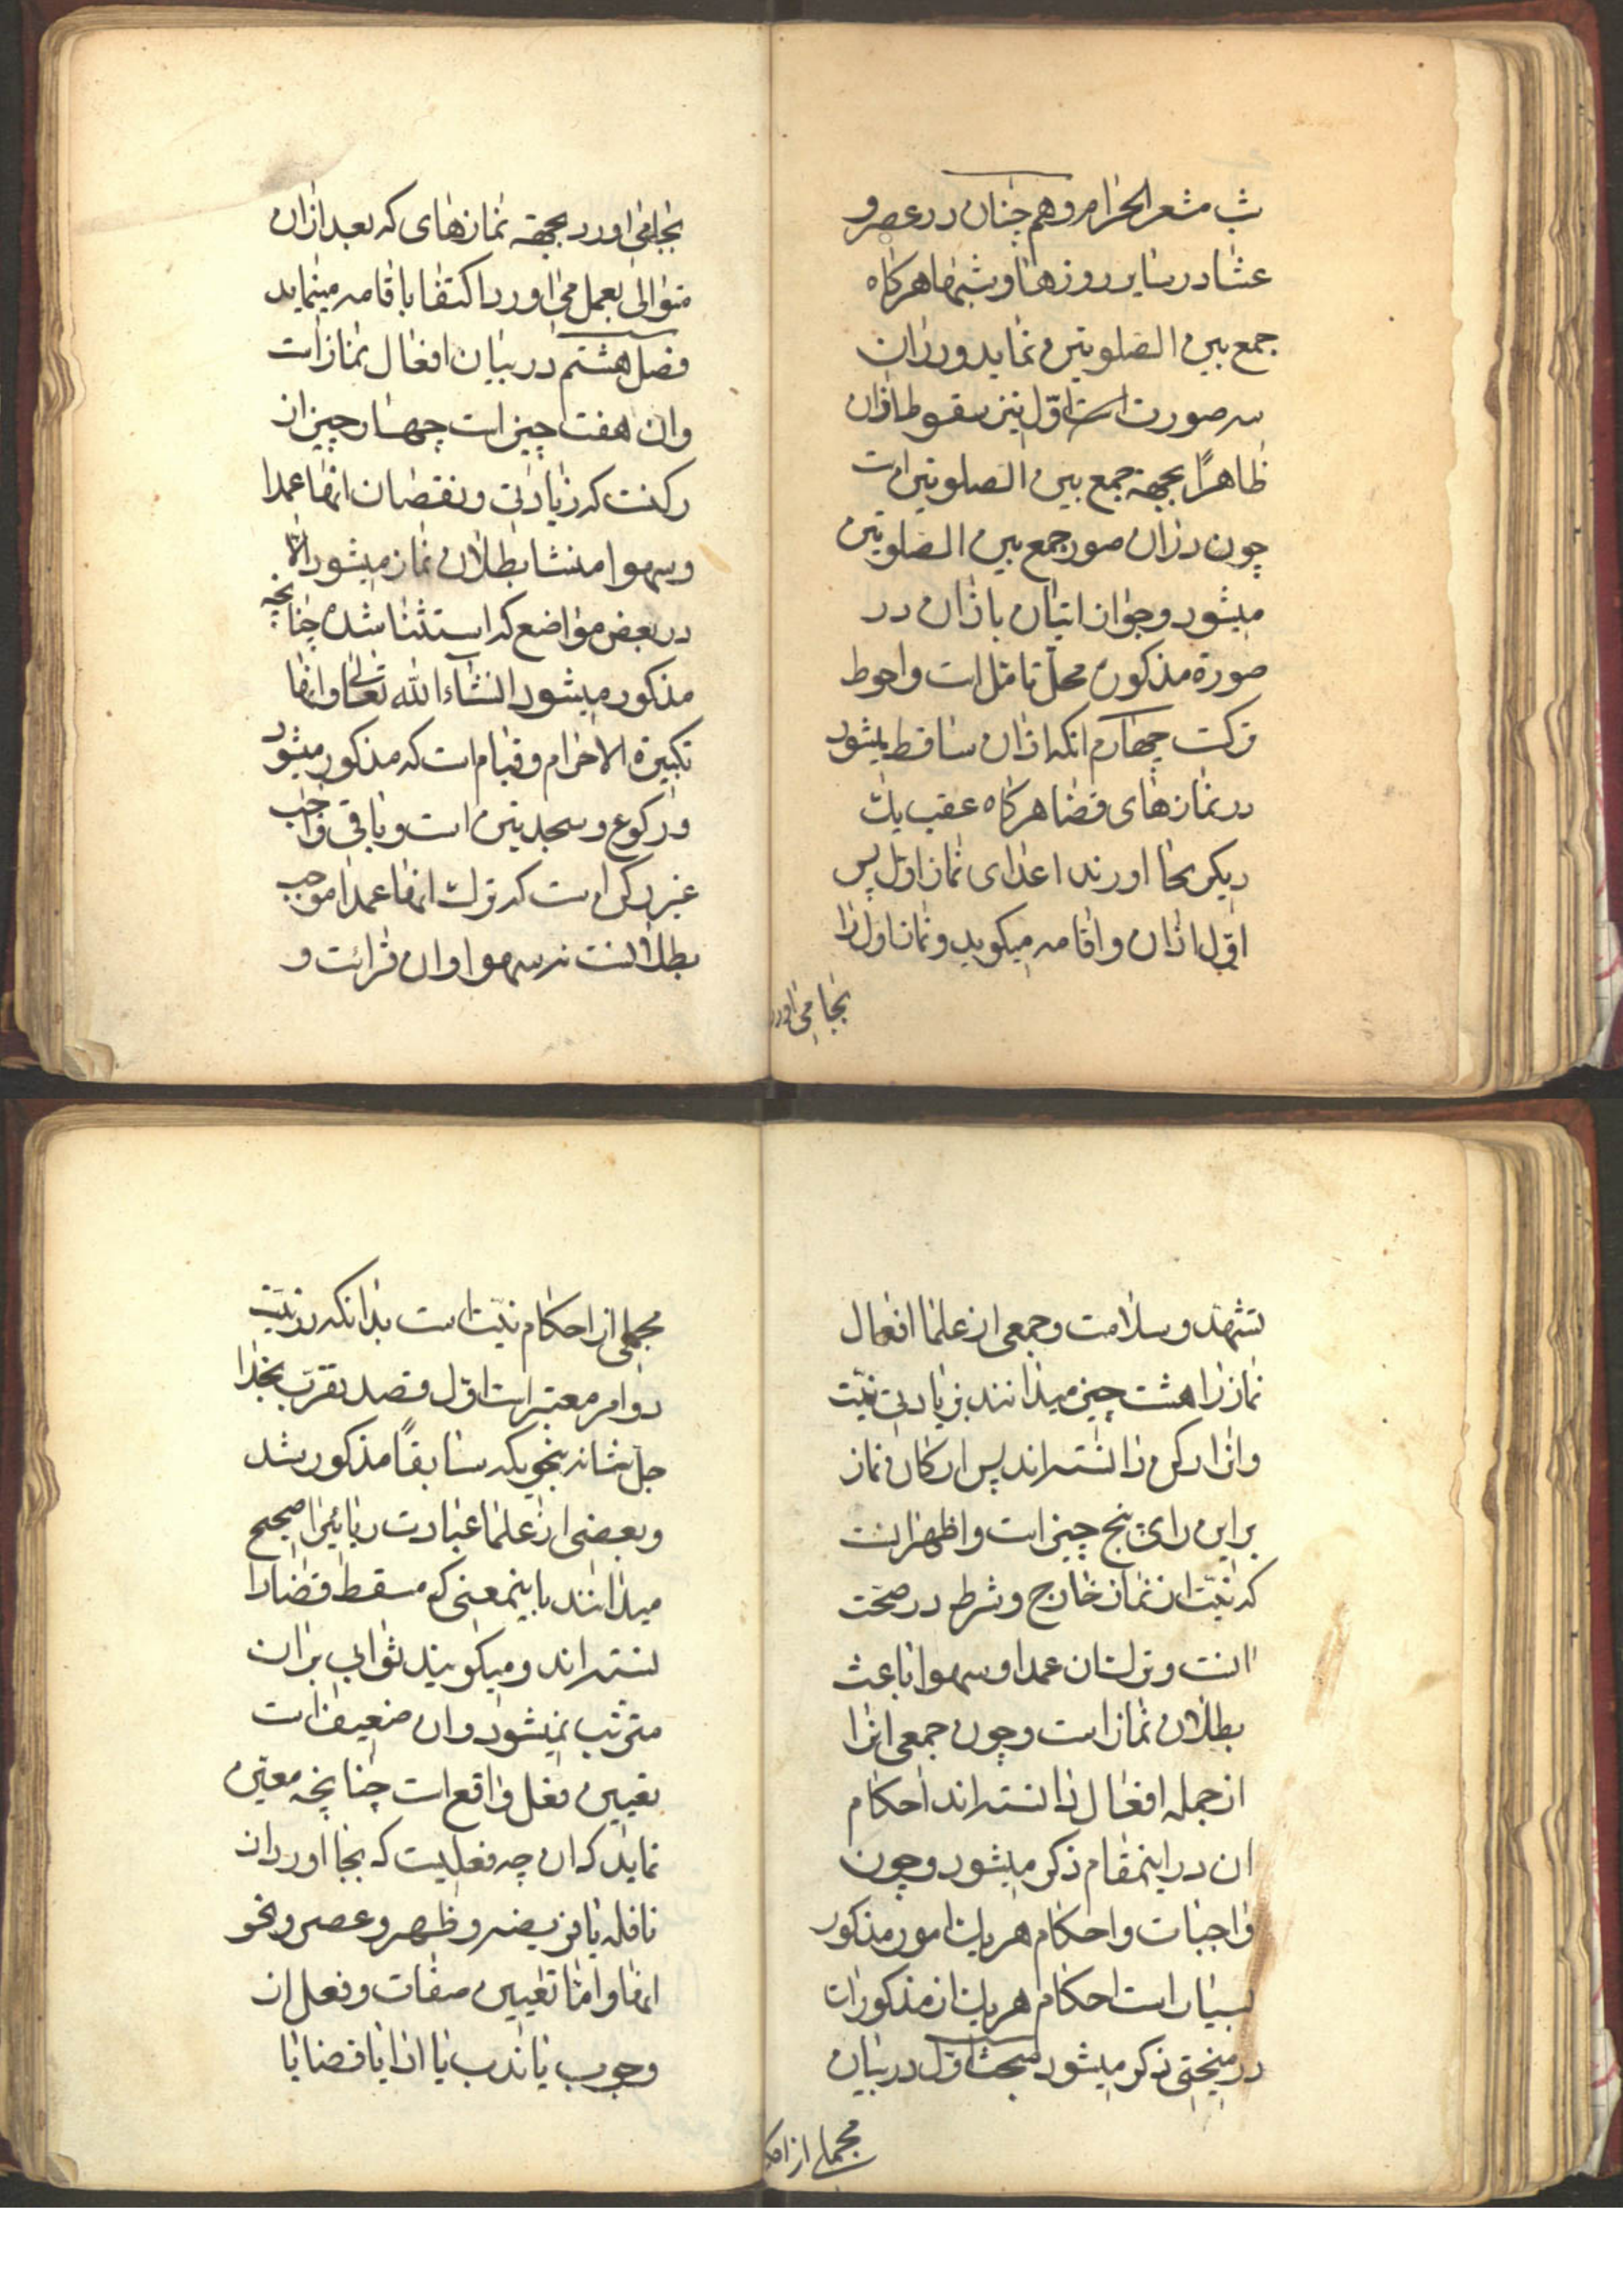 شب مشعر الحرام و هم چنان در عصر و
عشا در سایر روزها و شبها هرکاه
جمع بین الصلوتین نماید و در ان
سه صورت است اوّل نیز سقوط اذان
ظاهرًا بجهة جمع بین الصلوتین است
چون در ان صور جمع بین الصلوتین
میشود و جواز اتیان باذان در
صورة مذکوره محلّ تامّل است و احوط
ترکست چهارم انکه اذان ساقط میشود
در نمازهای قضا هرکاه عقب یک
دیکر بجا اورند اعدای نماز اوّل پس
اوّل اذان و اقامه میکوید و نماز اول را
بجا می اورد
بجا می اورد بجهة نمازهای که بعد از ان
متوالی بعمل می اورد اکتفا باقامه مینماید
فصل هشتم در بیان افعال نماز است
و ان هفت چیز است چهار چیز از
رکنست که زیادتی و نقصان انها عمدا
و سهوا منشا بطلان نماز میشود الّا
در بعض مواضع که استثنا شده چنانچه
مذکور میشود انشاء الله تعالی و انها
تکبیرة الاحرام و قیام است که مذکور میشود
و رکوع و سجدتین است و باقی واجب
غیر رکن است که ترک انها عمدا موجب
بطلانست نه سهوا و ان قرائت و
تشهّد و سلامست و جمعی از علما افعال
نماز را هشت چیز میدانند بزیادتی نیّت
و انرا رکن دانسته اند پس ارکان نماز
بر این رای پنج چیز است و اظهر انست
که نیّت از نماز خارج و شرط در صحّت
انست و ترک ان عمدا و سهوا باعث
بطلان نماز است و چون جمعی انرا
از جمله افعال دانسته اند احکام
ان در اینمقام ذکر میشود و چون
واجبات و احکام هر یک امور مذکور
بسیار است احکام هر یک از مذکورات
در مبحثی ذکر میشود مبحث اوّل در بیان
مجملی از احکا
مجملی از احکام نیّت است بدانکه در نیّت
دو امر معتبر است اوّل قصد تقرّب بخدا
جلّ شانه بنحویکه سابقًا مذکور شد
و بعضی از علما عبادت ریائیرا صحیح
میدانند باینمعنی که مسقط قضا را
نسته اند و میکویند ثوابی بر ان
مترتّب نمیشود و ان ضعیف است
تعیین فعل واقع است چنانچه معیّن
نماید که ان چه فعلیست که بجا اورد از
نافله یا فریضه و ظهر و عصر و نحو
انها و امّا تعیین صفات و فعل از
وجوب یا ندب یا ادا یا قضا یا